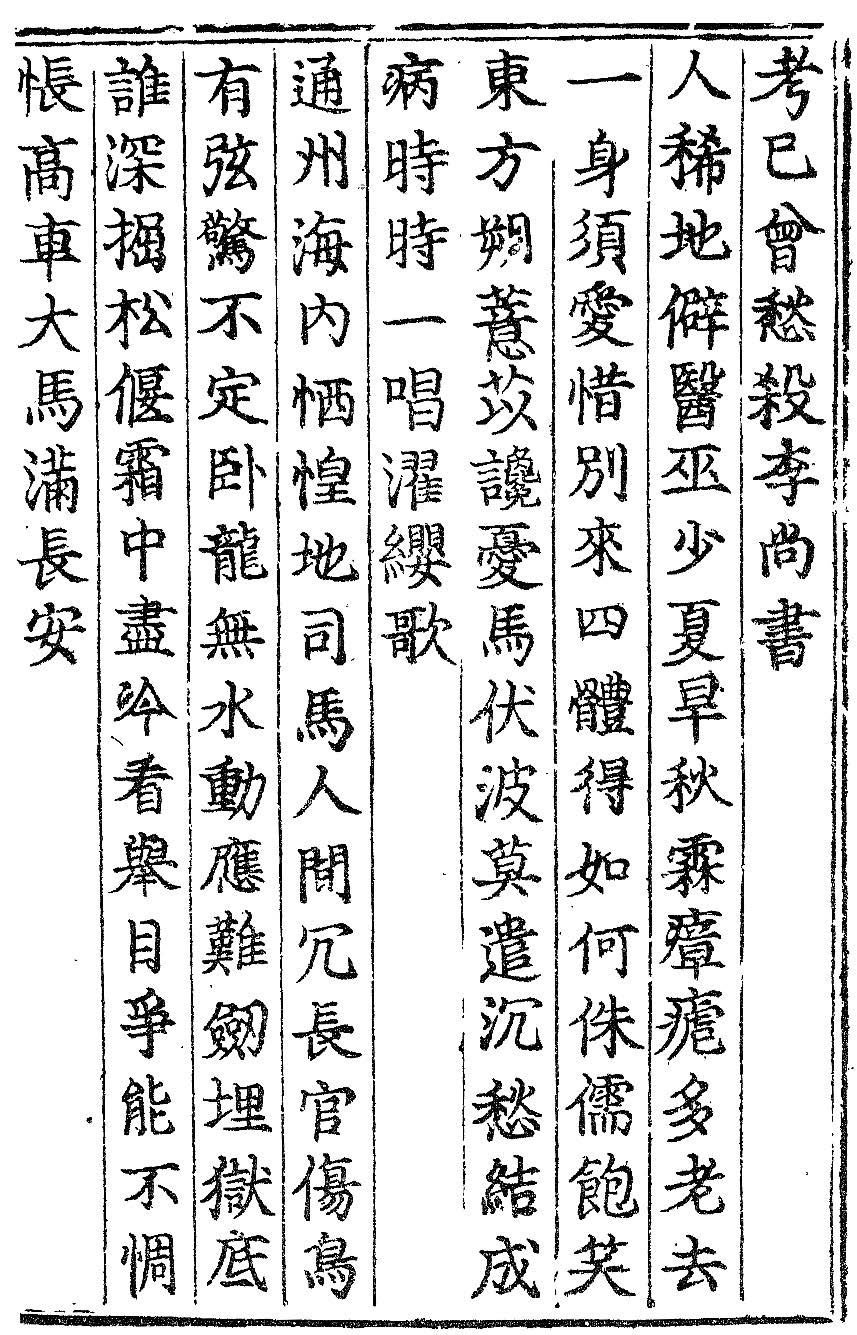 考已曾愁殺李尚書
人稀地僻醫巫少夏旱秋霖瘴瘧多老去
一身須愛惜別來四體得如何侏儒飽笑
東方朔薏苡讒憂馬伏波莫遣沉愁結成
病時時一唱濯纓歌
通州海內恓惶地司馬人間冗長官傷鳥
有弦驚不定卧龍無水動應難劒埋獄底
誰深掘松偃霜中盡吟看舉目爭能不惆
悵高車大馬滿長安